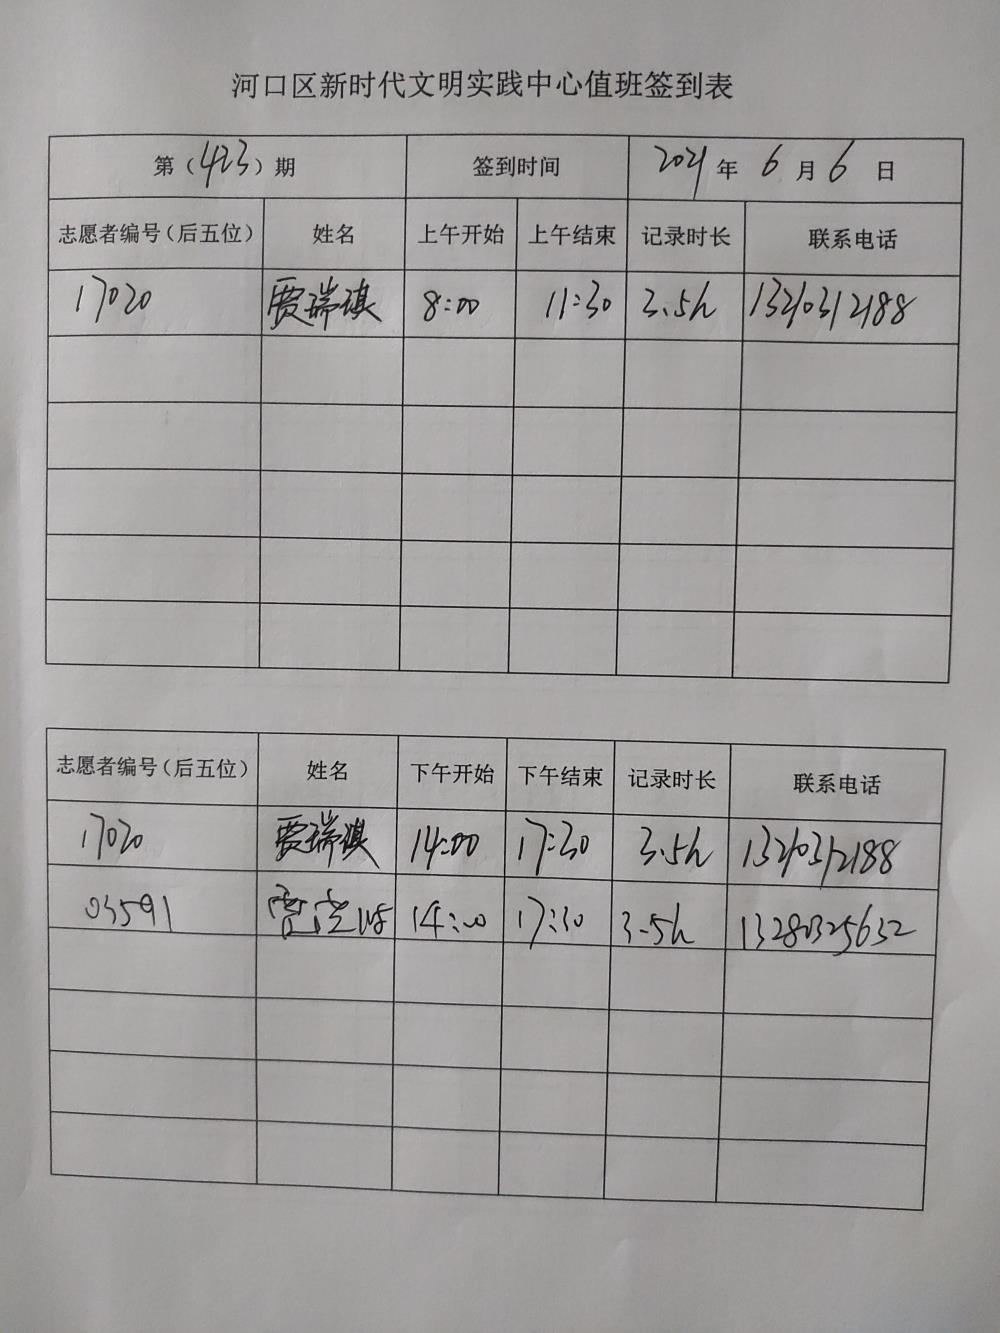 河口区新时代文明实践中心值班签到表
第（423）期 签到时间 2021年 6月6日
志愿者编号（后五位） 姓名 上午开始 上午结束 记录时长 联系电话
17020 贾瑞琪 8:00 11:30 3.5h 13210312188
志愿者编号（后五位） 姓名 下午开始 下午结束 记录时长 联系电话
17020 贾瑞琪 14:00 17:30 3.5h 13210312188
03591 14:00 17:30 3.5h 13280325632